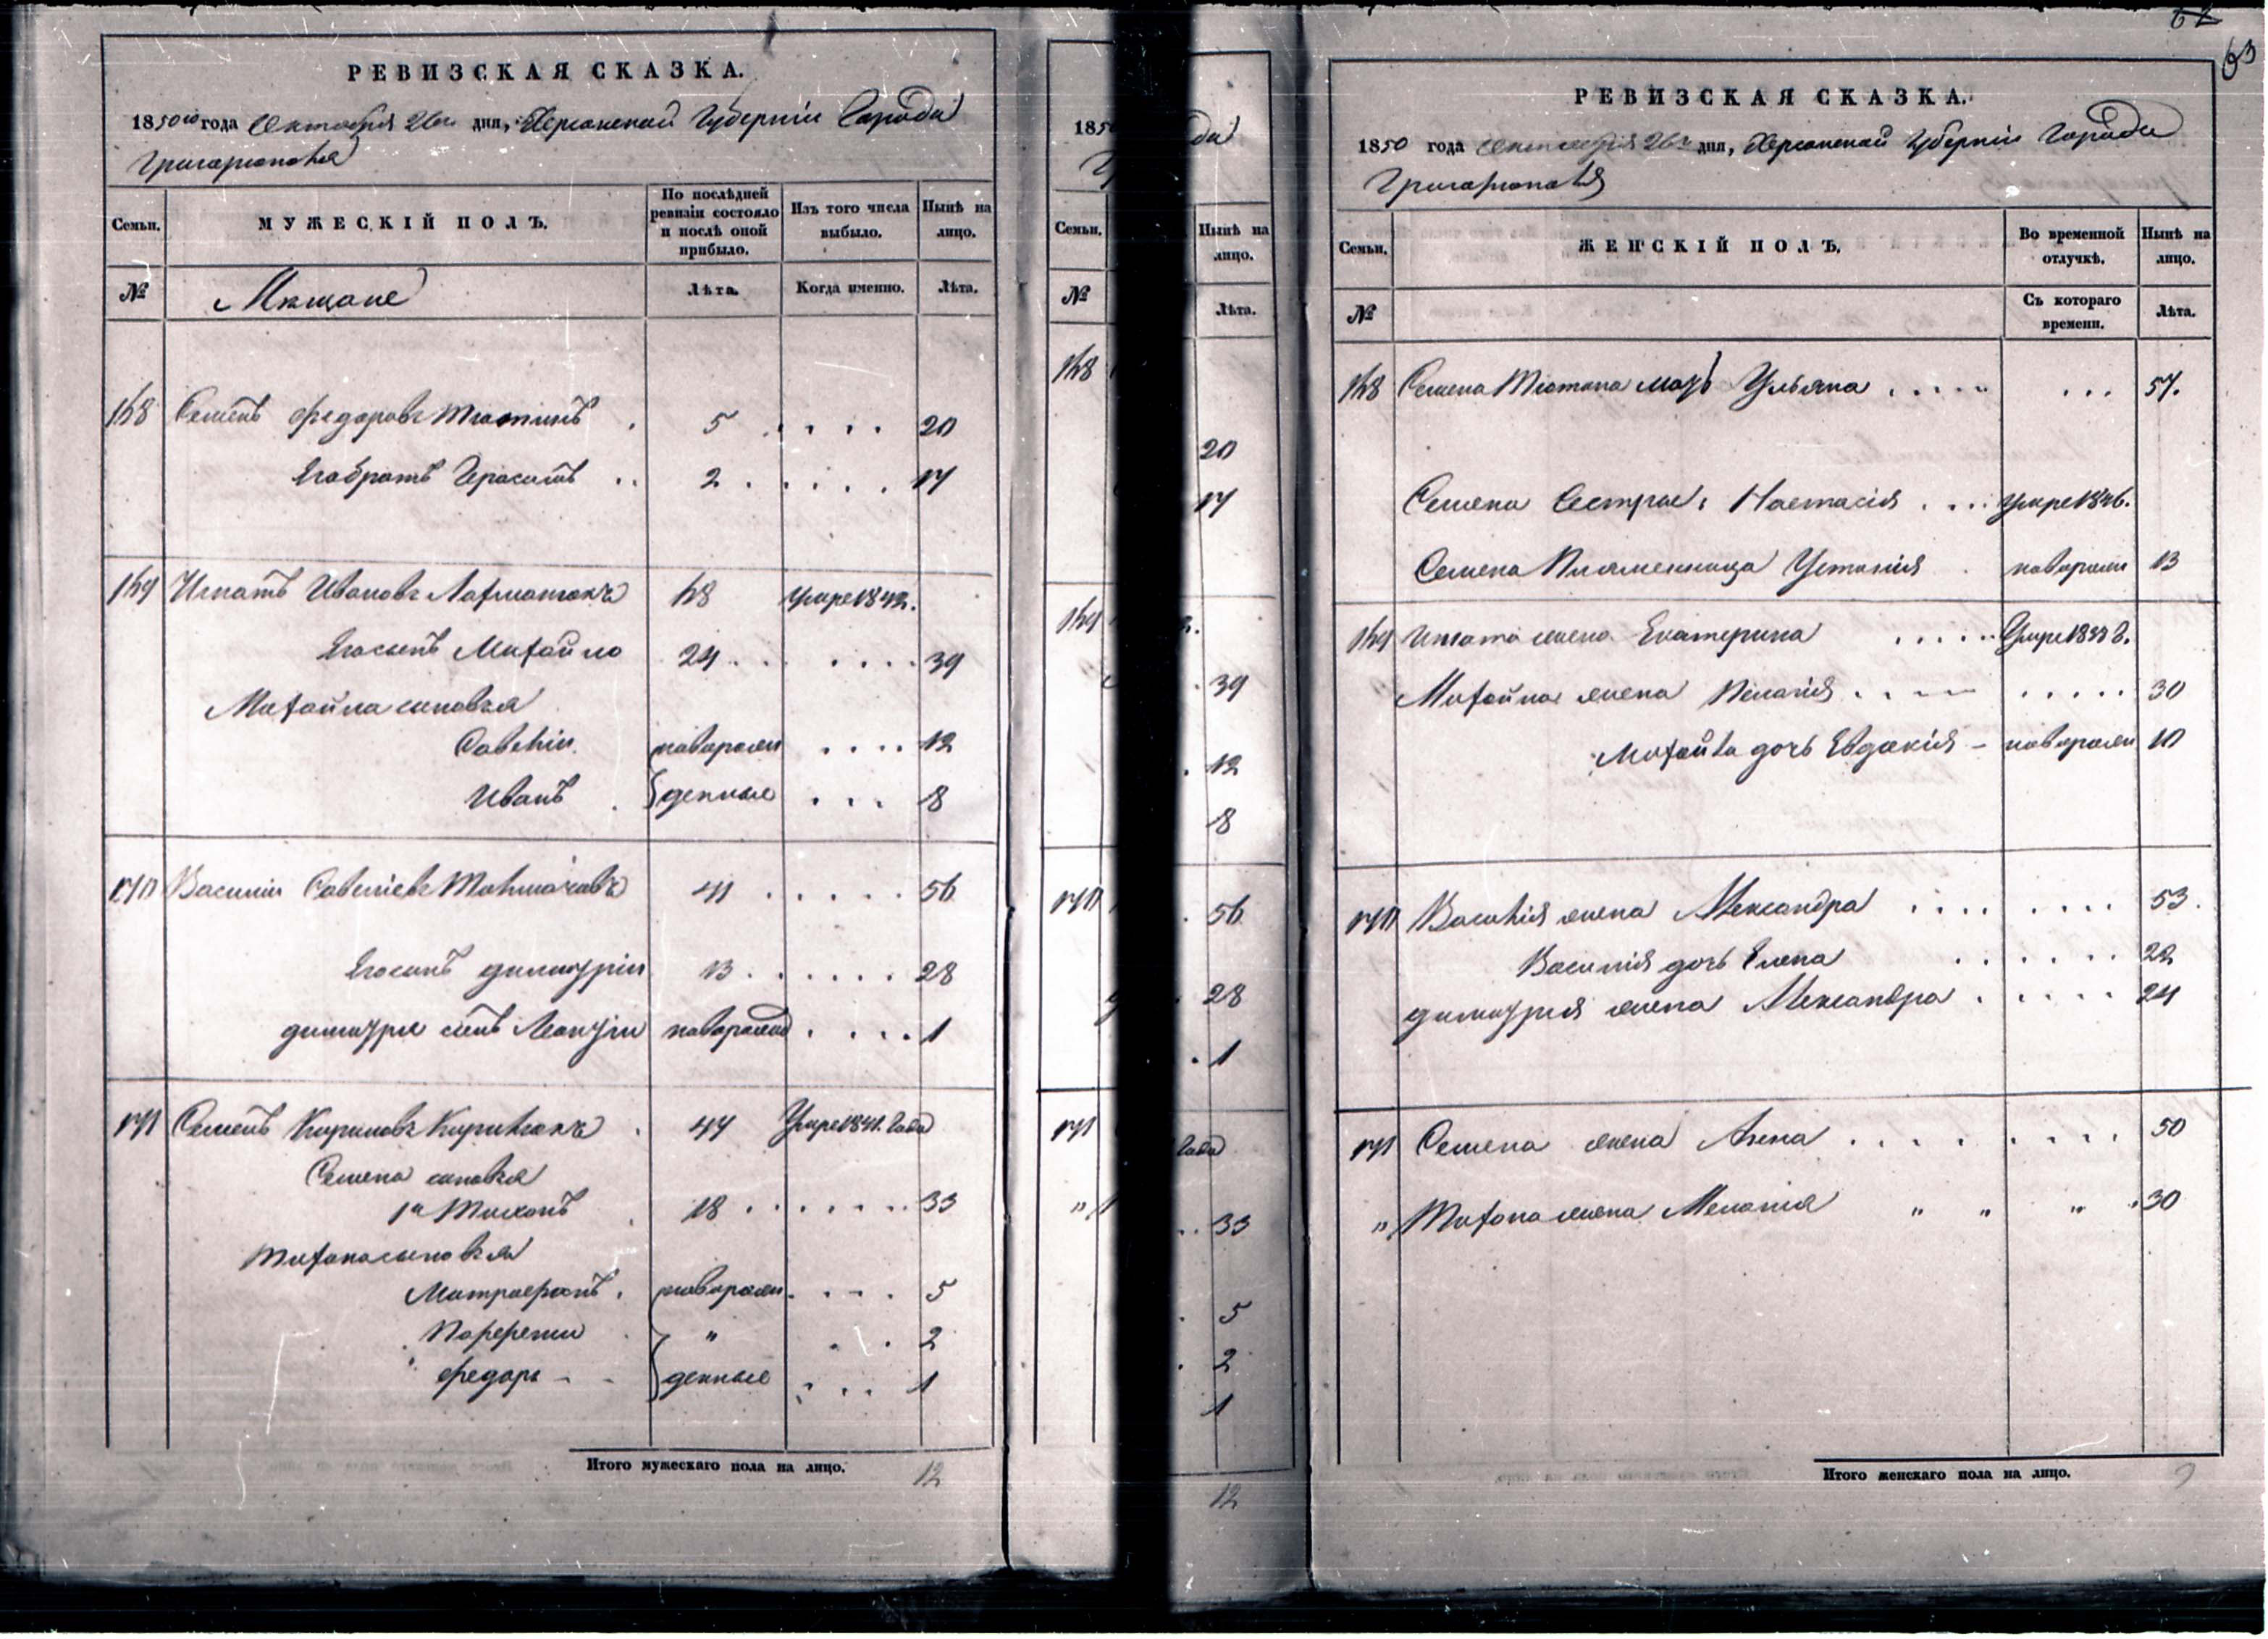 РЕВИЗСКАЯ СКАЗКА.
1850го года Октября 26го дня, Херсонской Губерніи Города
Григоріополя
Семьи.
МУЖЕСКІЙ ПОЛЪ.
По послѣдней ревизіи состояло и послѣ оной прибыло.
Изъ того числа выбыло.
Нынѣ на лицо.
№
Мѣщане
Лѣта.
Когда именно.
Лѣта.
168 Семенъ Федоровъ 5 20
Егобратъ Герасимъ 2 17
169 Игнатъ Ивановъ 68 умре 1842.
Егосынъ Михайло 24 39
Михайла сыновья
Савелій новорож 12
Иванъ денные 8
170 Василій Савеліевъ Толмачовъ 41 56
Егосынъ Димитрій 13 28
Димитрія сынъ новорожд 1
171 Семенъ Кириловъ 44 Умре 1841. Года
Семена сыновья
1й Тихонъ 18 33
Тихона сыновья
Митрофанъ новорож 5
Порфирій " 2
Федоръ денные 1
Итого мужескаго пола на лицо. 12
185
да
Семьи.
Нынѣ на лицо.
№
Лѣта.
168
20
17
169
39
12
8
170
56
28
1
171
Года
33
5
2
1
12
62
63
РЕВИЗСКАЯ СКАЗКА.
1850 года Октября 26го дня, Херсонской Губерніи Города
Григоріополя
Семьи.
ЖЕНСКІЙ ПОЛЪ.
Во временной отлучкѣ.
Нынѣ на лицо.
№
Съ котораго времени.
Лѣта.
168 Семена мать Ульяна 57.
Семена Сестра: Настасія умре 1846.
Семена Племенница Устинія новорож 13
169 Игната жена Екатерина Умре 1838.
Михайла жена Пелагія 30
Михайла дочь Евдокія - новорож 10
170 Василія жена Александра 53.
Василія дочь Елена 22
Димитрія жена Александра 24
171 Семена жена Анна 50
" Тихона жена Меланія " " " 30
Итого женскаго пола на лицо. 9